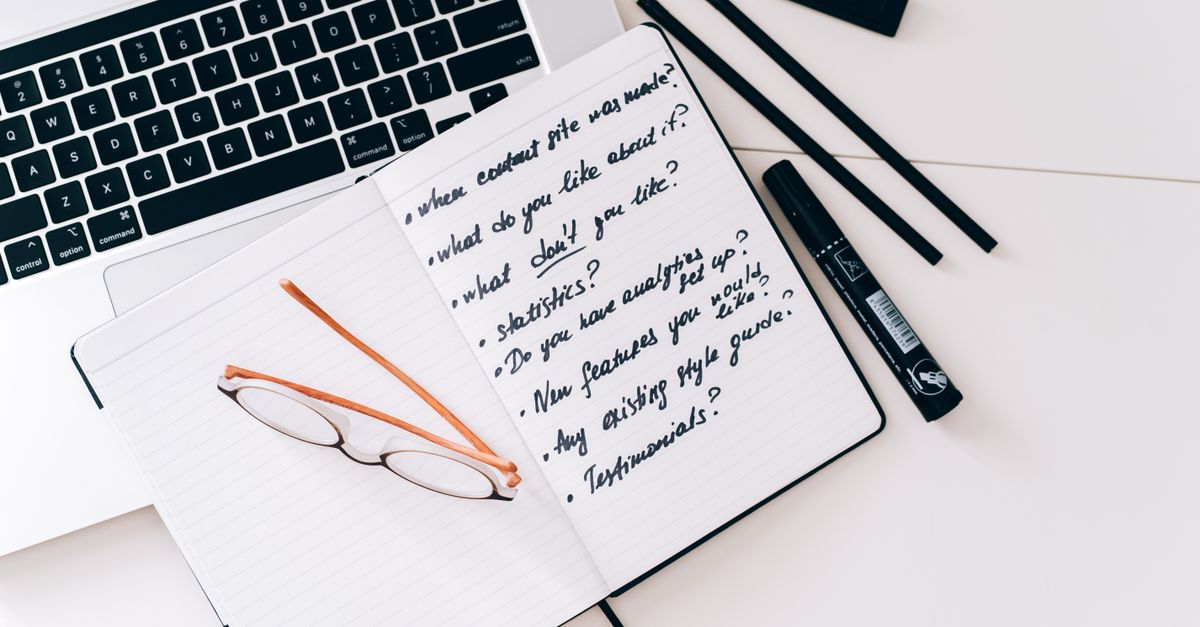 2 3 4 5 6 7 8 9
Q W E R T Y U I O P
return
A S D F G H J K L
Z X C V B N M < , > . ? /
shift
control
option
command
command
option
• when content site was made?
• what do you like about it?
• what don't you like?
• statistics?
• Do you have analytics
set up?
• New features you would
like?
• Any existing style guide?
• Testimonials?